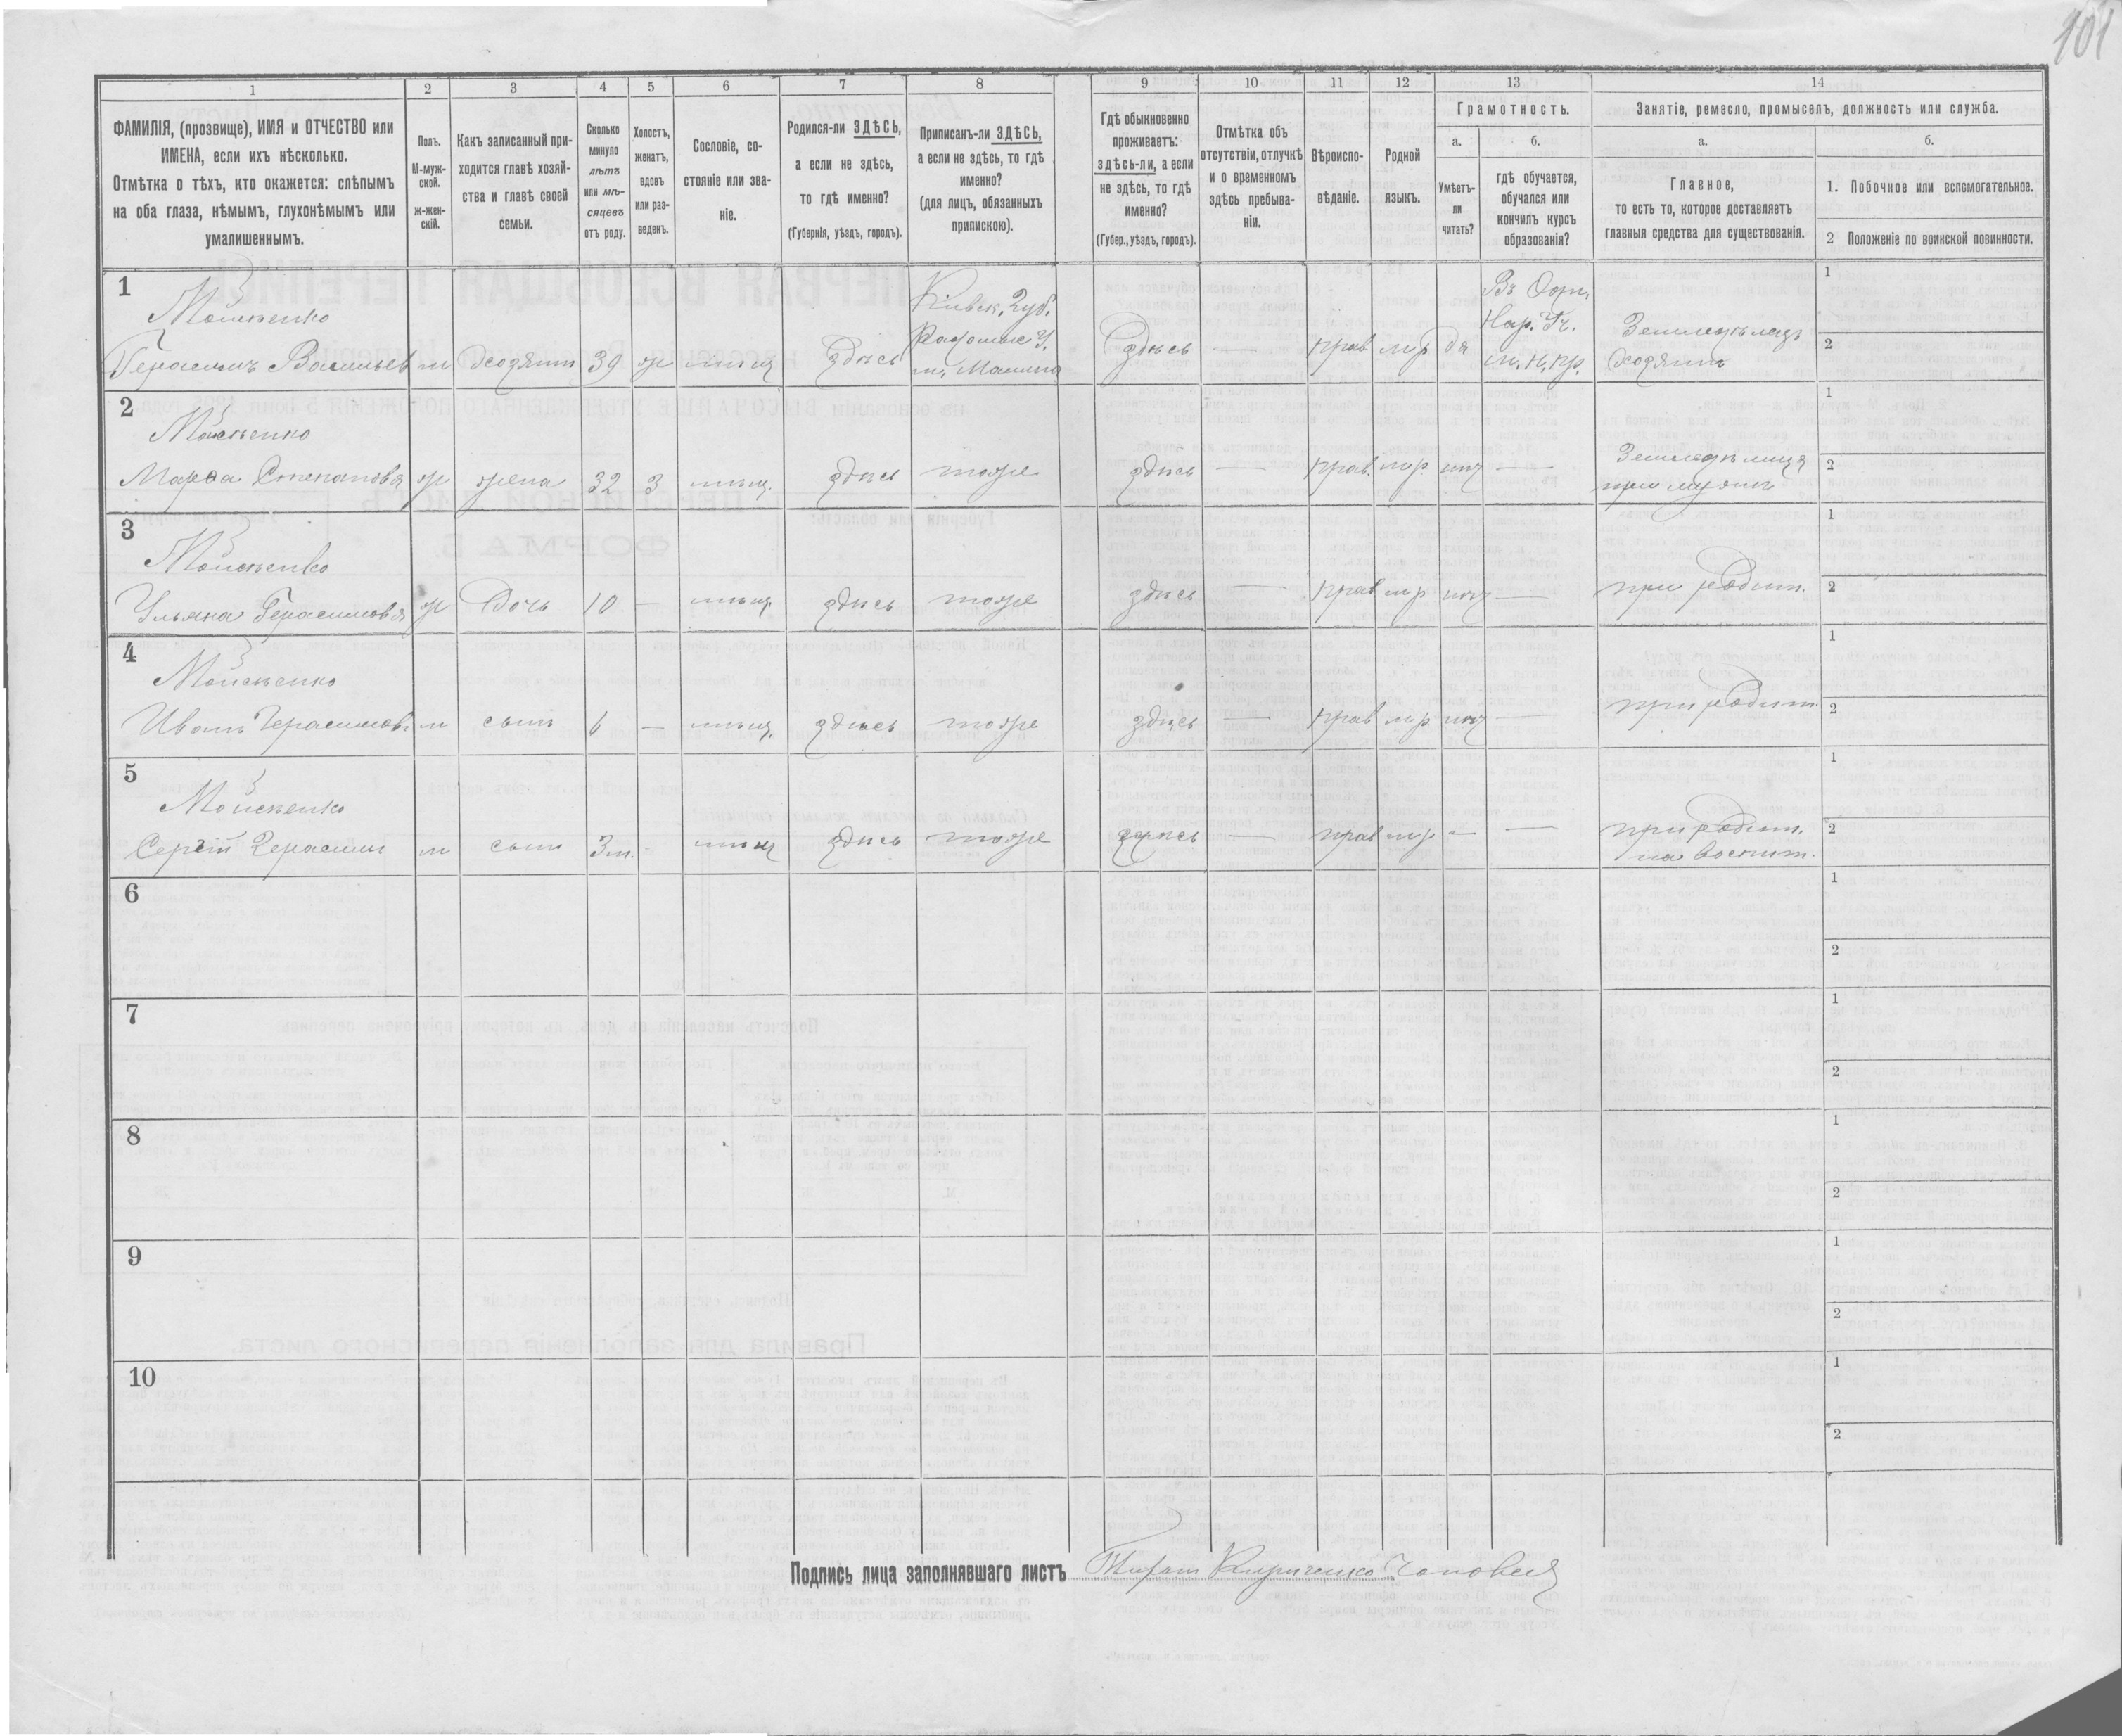 101
1 2 3 4 5 6 7 8 9 10 11 12 13 14
ФАМИЛІЯ, (прозвище), ИМЯ и ОТЧЕСТВО или
ИМЕНА, если ихъ нѣсколько.
Отмѣтка о тѣхъ, кто окажется: слѣпымъ
на оба глаза, нѣмымъ, глухонѣмымъ или
умалишеннымъ.
Полъ.
М-муж-
ской.
ж-жен-
скій.
Какъ записанный при-
ходится главѣ хозяй-
ства и главѣ своей
семьи.
Сколько
минуло
лѣтъ
или мѣ-
сяцевъ
отъ роду.
Холостъ,
женатъ,
вдовъ
или раз-
веденъ.
Сословіе, со-
стояніе или зва-
ніе.
Родился-ли ЗДѢСЬ,
а если не здѣсь,
то гдѣ именно?
(Губернія, уѣздъ, городъ).
Приписанъ-ли ЗДѢСЬ,
а если не здѣсь, то гдѣ
именно?
(для лицъ, обязанныхъ
припискою).
Гдѣ обыкновенно
проживаетъ:
здѣсь-ли, а если
не здѣсь, то гдѣ
именно?
(Губер., уѣздъ, городъ).
Отмѣтка объ
отсутствіи, отлучкѣ
и о временномъ
здѣсь пребыва-
ніи.
Вѣроиспо-
вѣданіе.
Родной
языкъ.
Грамотность.
а.
Умѣетъ-
ли
читать?
б.
гдѣ обучается,
обучался или
кончилъ курсъ
образованія?
Занятіе, ремесло, промыселъ, должность или служба.
а.
Главное,
то есть то, которое доставляетъ
главныя средства для существованія.
б.
1. Побочное или вспомогательное.
2 Положеніе по воинской повинности.
1
Мойсѣенко
Герасимъ Васильев м Хозяинъ 39 ж мѣщ здѣсь
Кіевск. Губ.
Радомыс. У.
м. Малина
здѣсь — прав мр да
Нар. Уч.
Земледѣлецъ
Хозяинъ
1
2
2
Мойсѣенко
Марѳа Степановна ж жена 32 З мѣщ. здѣсь тоже здѣсь — прав. мр —
Земледѣлица
при мужѣ
1
2
3
Мойсѣенко
Ульяна Герасимовна ж Дочь 10 — мѣщ. здѣсь тоже здѣсь — прав мр — при родит.
1
2
4
Мойсѣенко
Иванъ Герасимов. м сынъ 6 — мѣщ. здѣсь тоже здѣсь — прав мр — при родит.
1
2
5
Мойсѣенко
Сергѣй Герасим м сынъ 3 м. - мѣщ здѣсь тоже здѣсь — прав мр — —
при родит.
на воспит.
1
2
6
1
2
7
1
2
8
1
2
9
1
2
10
1
2
Подпись лица заполнявшаго листъ